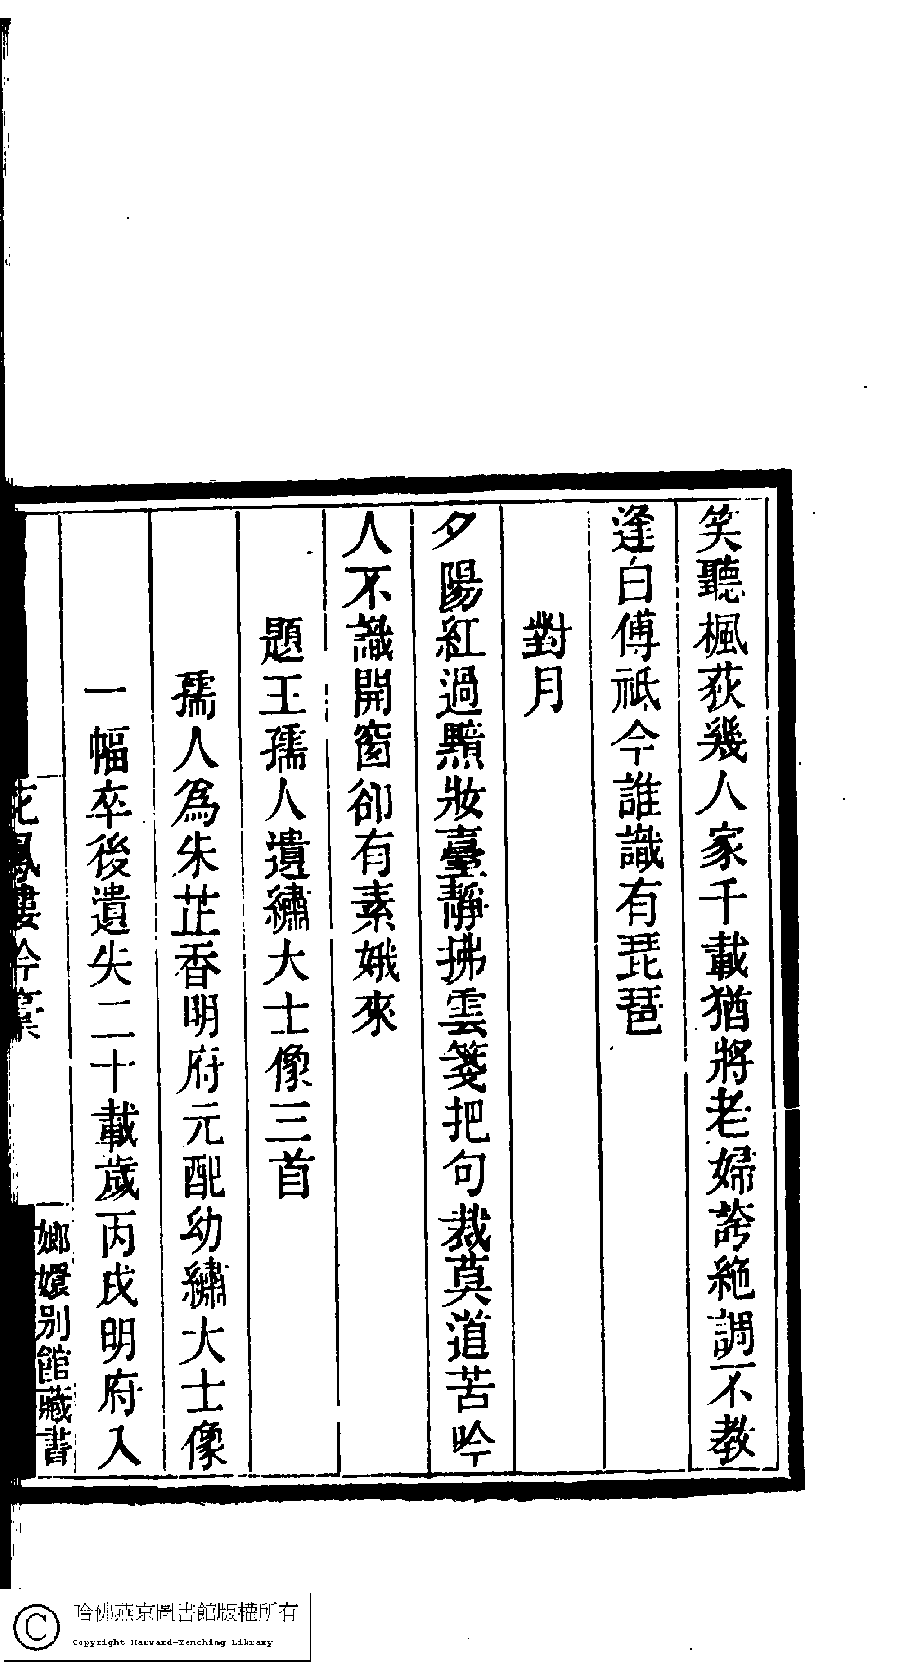 笑聽楓荻幾人家千載猶將老婦誇絶調不教
逢白傅祇今誰識有琵琶
對月
夕陽紅過黯妝臺靜拂雲箋把句裁莫道苦吟
人不識開窗卻有素娥來
題王孺人遺繡大士像三首
孺人為朱芷香明府元配幼繡大士像
一幅卒後遺失二十載歲丙戌明府入
花鳳樓吟稾
嫏嬛別館藏書
哈佛燕京圖書館版權所有
Copyright Harvard-Yenching Library